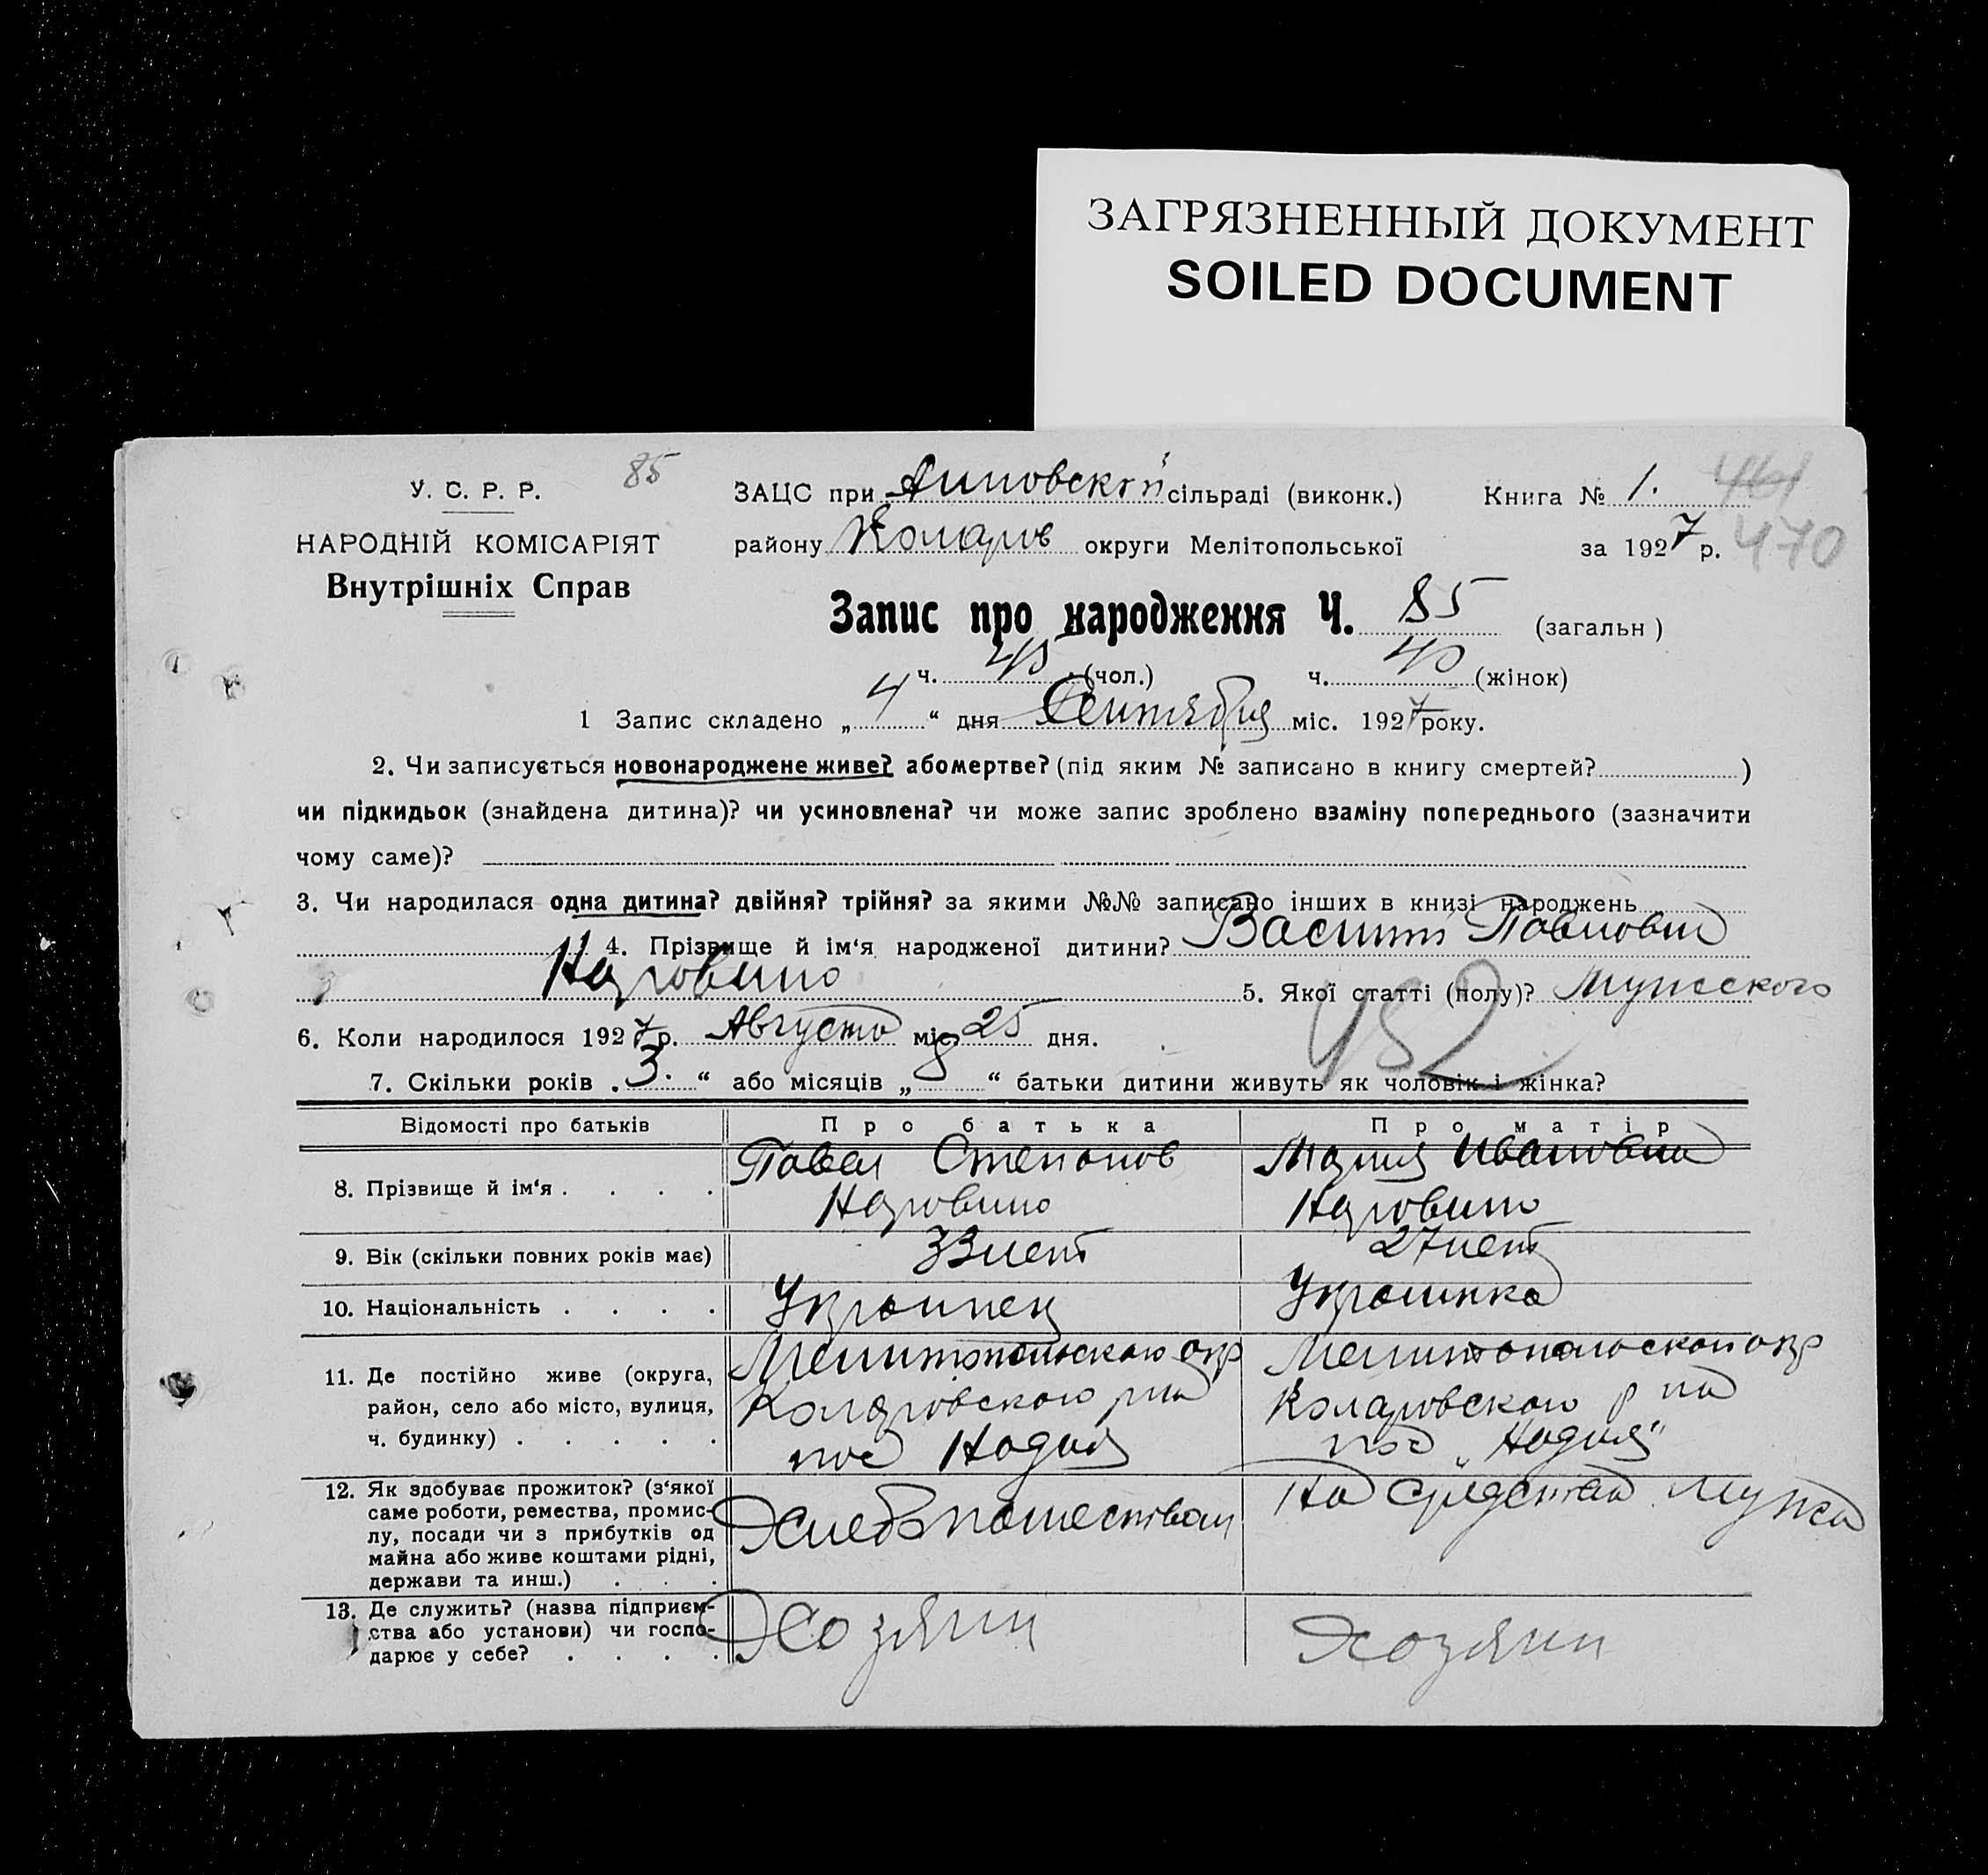 ЗАГРЯЗНЕННЫЙ ДОКУМЕНТ
SOILED DOCUMENT
У. С. Р. Р.
85
НАРОДНІЙ КОМІСАРІЯТ
Внутрішніх Справ
ЗАЦС при сільраді (виконк.) Книга № 1. 461
району Коларов округи Мелітопольської за 1927 р. 470
Запис про народження Ч. 85 (загальн )
ч. 45 (чол.) ч. 40 (жінок)
1 Запис складено „ 4 “ дня Сентября міс. 1927 року.
2. Чи записується новонароджене живе? або мертве? (під яким № записано в книгу смертей? )
чи підкидьок (знайдена дитина)? чи усиновлена? чи може запис зроблено взаміну попереднього (зазначити
чому саме)?
3. Чи народилася одна дитина? двійня? трійня? за якими №№ записано інших в книзі народжень
4. Прізвище й ім‘я народженої дитини? Василий Павлович
5. Якої статті (полу)? Мужского
482
6. Коли народилося 1927 р. Августа міс. 25 дня.
7. Скільки років „ 3. “ або місяців „ 8 “ батьки дитини живуть як чоловік і жінка?
Відомості про батьків Про батька Про матір
8. Прізвище й ім‘я . . . . Павел Степанов Мария Ивановна
9. Вік (скільки повних років має) 33 лет 27 лет
10. Національність . . . . Украинец Украинка
11. Де постійно живе (округа, Мелитопольского окр Мелитопольской окр
район, село або місто, вулиця, Коларовского р на Коларовского р на
ч. будинку) . . . . . пос Надия пос „Надия“
12. Як здобуває прожиток? (з‘якої На средствах мужа
саме роботи, ремества, промис- Хлебопашеством
лу, посади чи з прибутків од
майна або живе коштами рідні,
держави та инш.) . . .
13. Де служить? (назва підприєм- Хозяин Хозяин
ства або установи) чи госпо-
дарює у себе? . . . .